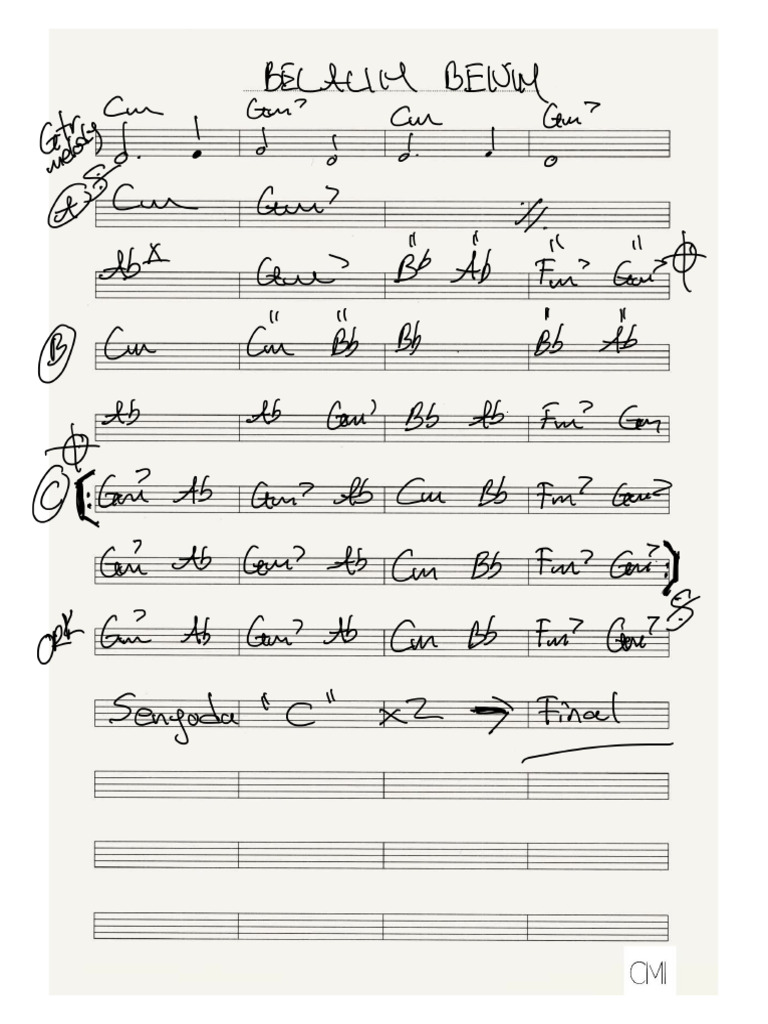 BELALIM BENIM
Cm Gm7 Cm Gm7
Gtr melody
A Cm Gm7 ٪
Ab Gm7 Bb Ab Fm7 Gm7
B Cm Cm Bb Bb Bb Ab
Ab Ab Gm7 Bb Ab Fm7 Gm
C Gm7 Ab Gm7 Ab Cm Bb Fm7 Gm7
Gm7 Ab Gm7 Ab Cm Bb Fm7 Gm7
ORK Gm7 Ab Gm7 Ab Cm Bb Fm7 Gm7
Senyoda "C" x2 → Final
CMI